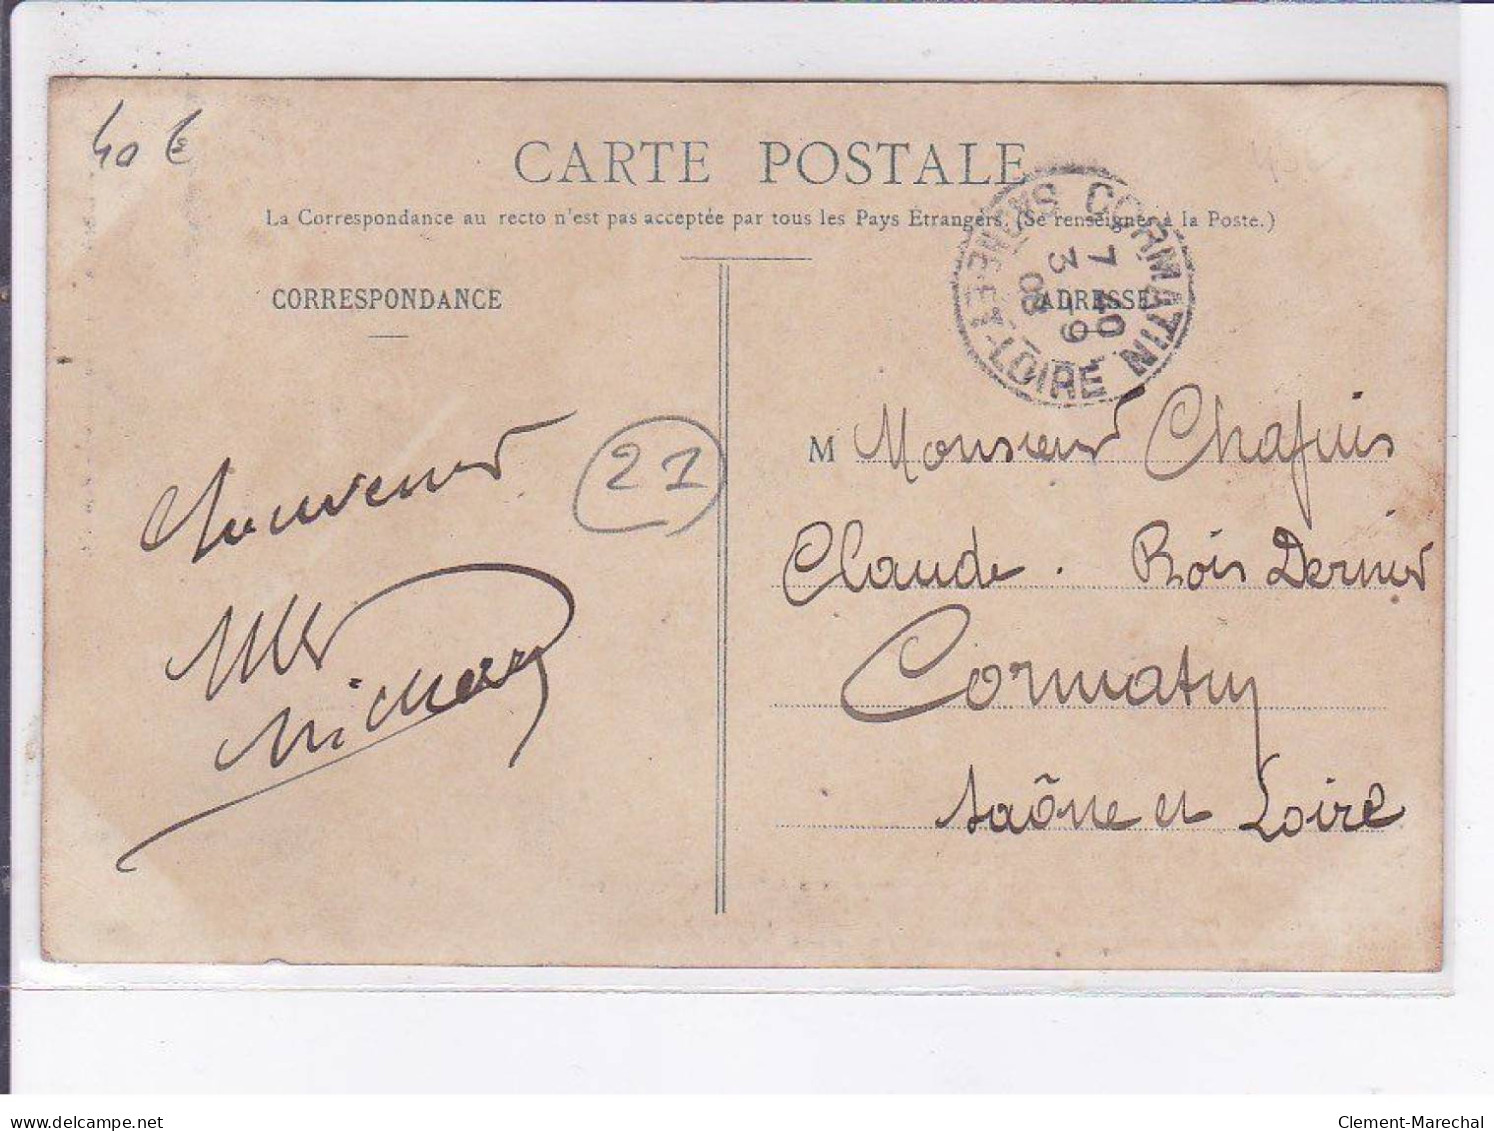 40 €
CARTE POSTALE
La Correspondance au recto n'est pas acceptée par tous les Pays Etrangers. (Se renseigner à la Poste.)
CORMATIN SAONE-ET-LOIRE
7 40
3 - 9
08
CORRESPONDANCE
ADRESSE
21
M Monsieur Chapuis
Claude. Bois Dernier
Cormatin
Saône et Loire
delcampe.net
Clement-Marechal